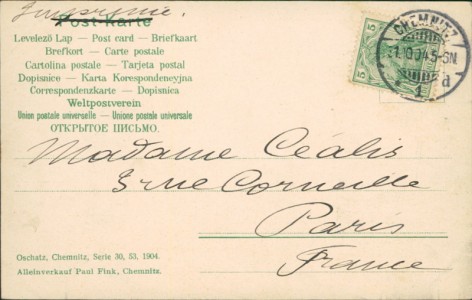 Imprimé.
Post-Karte
Levelező Lap — Post card — Briefkaart
Brefkort — Carte postale
Cartolina postale — Tarjeta postal
Dopisnice — Karta Korespondencyjna
Correspondenzkarte — Dopisnica
Weltpostverein
Union postale universelle — Unione postale universale
ОТКРЫТОЕ ПИСЬМО.
5 5
CHEMNITZ
5-6N.
1 d
Madame Céalis
3 rue Corneille
Paris
France
Oschatz, Chemnitz, Serie 30, 53, 1904.
Alleinverkauf Paul Fink, Chemnitz.